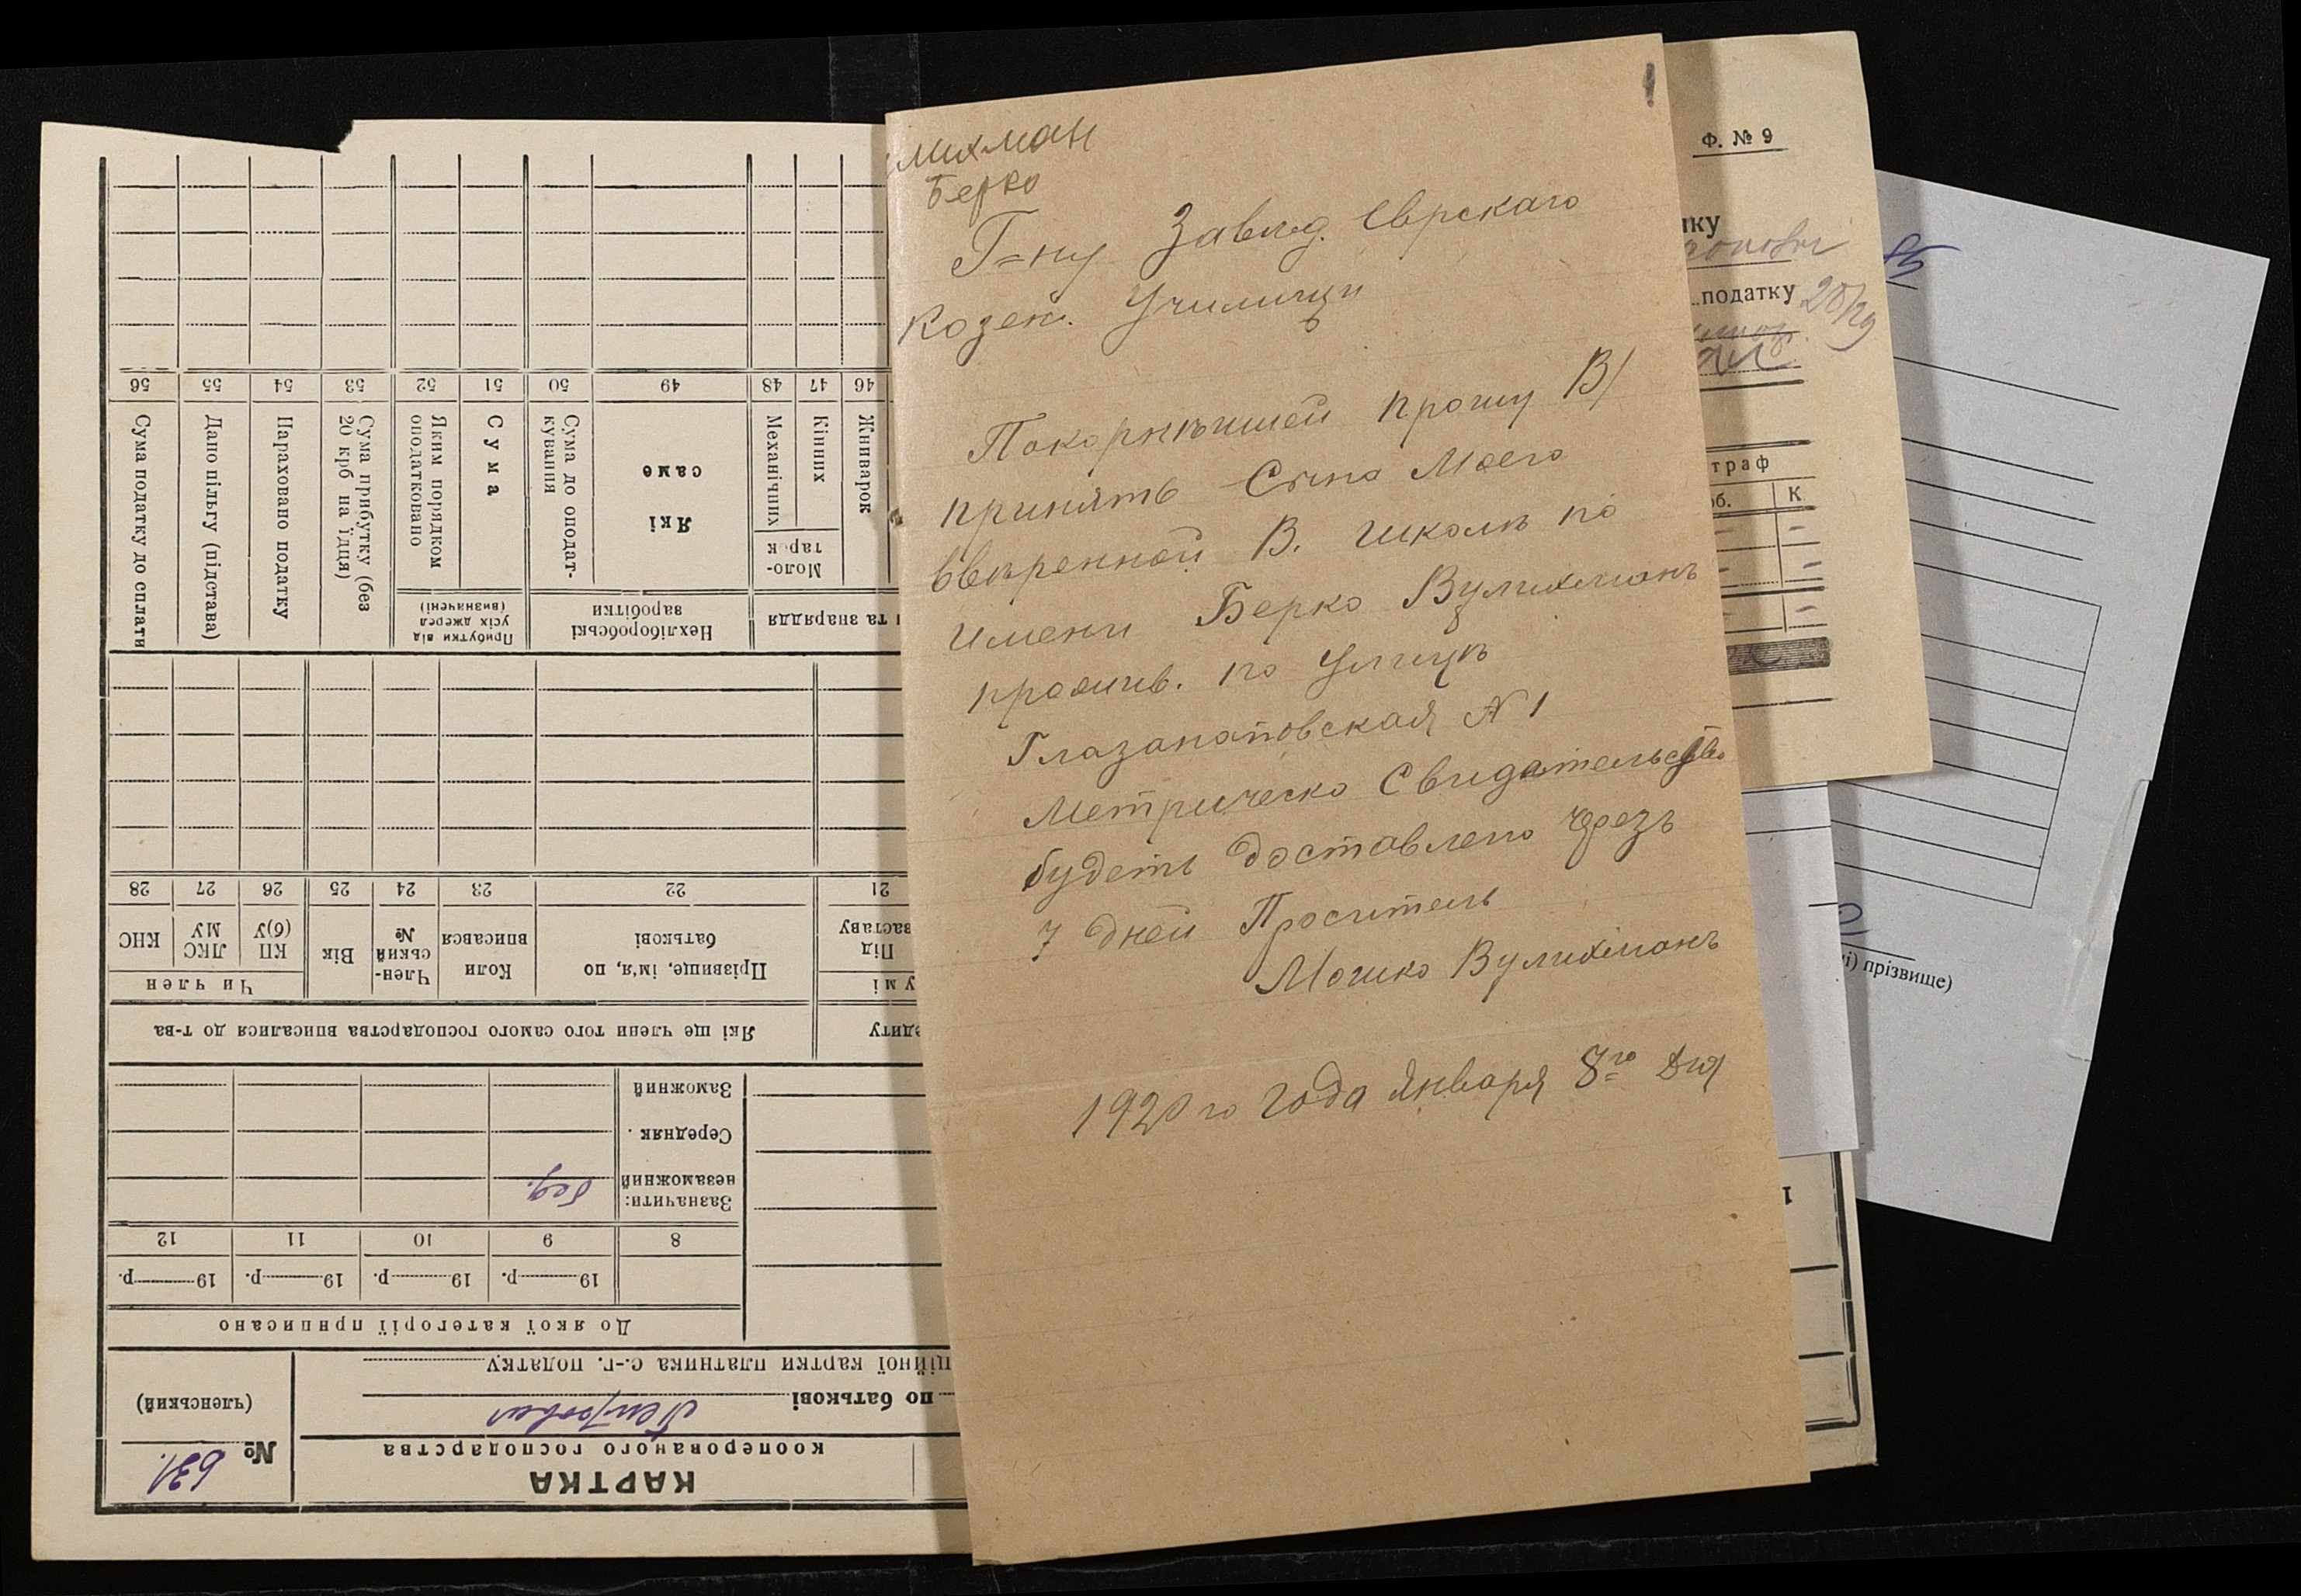 михман
Берко
Г=ну Завед. Еврскаго
Козен. Училищи
Покорнѣишей прошу В/
принять Сына Моего
ввѣренной В. Школѣ по
Имени Берко Вулихманъ
прожив. по Улицѣ
Глазанаповская № 1
Метрическо Свидательство
будеть доставлено черезъ
7 дней Проситель
Мошко Вулихманъ
1920 го Года Января 8го Дня
КАРТКА
кооперованого господарства
№ 631.
(членський)
по батькові Петрович
ційної картки платника с.-г. податку
До якої категорії приписано
19 р. 19 р. 19 р. 19 р.
8 9 10 11 12
Зазначити:
незаможний бед.
Середняк .
Заможний
едиту
Які ще члени того самого господарства вписалися до т-ва
у мі
Під
заставу
Прізвище, ім'я, по
батькові
Коли
вписався
Член-
ський
№
Вік
Чи член
КП
(б)У
ЛКС
МУ
КНС
21 22 23 24 25 26 27 28
та знаряддя
Жниварок
Моло-
тарок
Кінних
Механічних
Нехліборобські
заробітки
Які
саме
Сума до оподат-
кування
Прибутки від
усіх джерел
(визначені)
Сума
Яким порядком
оподатковано
Сума прибутку (без
20 крб на їдця)
Нараховано податку
Дано пільгу (підстава)
Сума податку до сплати
46 47 48 49 50 51 52 53 54 55 56
Ф. № 9
ку
податку 28/29
траф
об. К
і) прізвище)
1